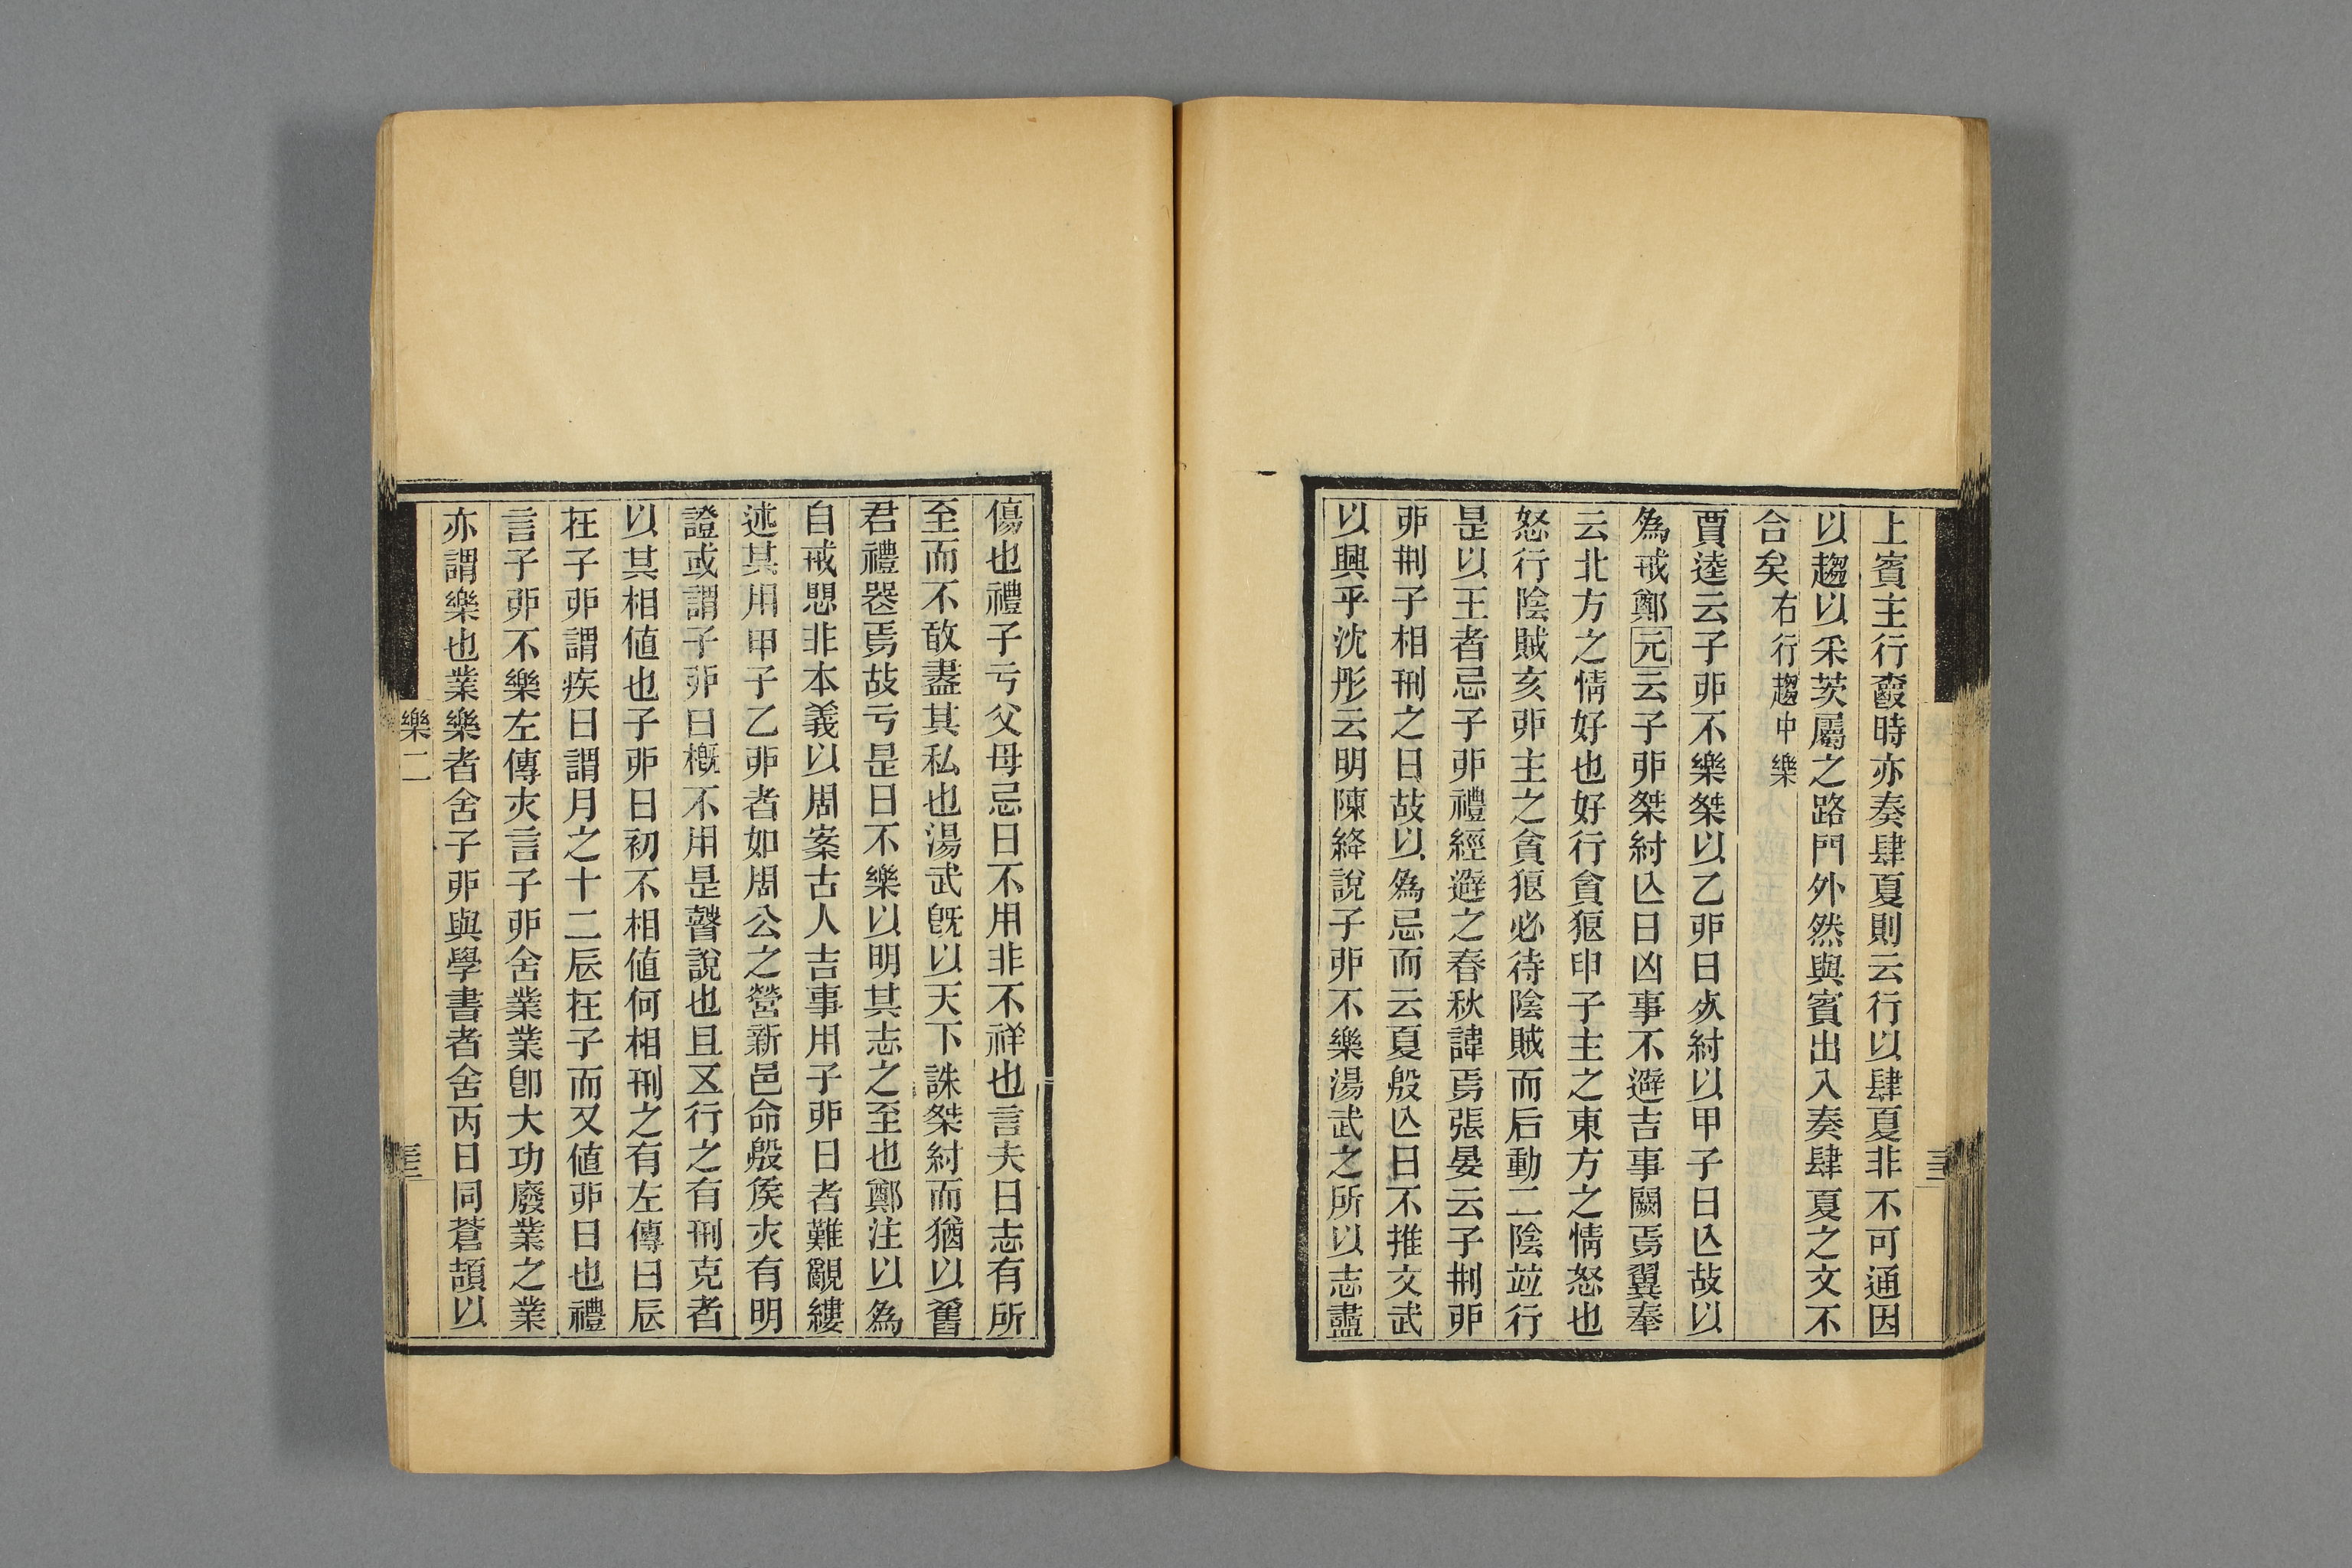 上賓主行𡕢時亦奏肆夏則云行以肆夏非不可通因
以趨以采茨屬之路門外然與賓出入奏肆夏之文不
合矣右行趨中樂
賈逵云子丣不樂桀以乙丣日𣦸紂以甲子日亾故以
爲戒鄭元云子丣桀紂亾日凶事不避吉事闕焉翼奉
云北方之情好也好行貪狼申子主之東方之情怒也
怒行陰賊亥丣主之貪狼必待陰賊而后動二陰竝行
是以王者忌子丣禮經避之春秋諱焉張晏云子㓝丣
丣㓝子相刑之日故以爲忌而云夏殷亾日不推文武
以興乎沈彤云明陳絳說子丣不樂湯武之所以志盡
傷也禮子亏父母忌日不用非不祥也言夫日志有所
至而不敢盡其私也湯武旣以天下誅桀紂而猶以舊
君禮器焉故亏是日不樂以明其志之至也鄭注以爲
自戒愳非本義以周案古人吉事用子丣日者難覼縷
述其用甲子乙丣者如周公之營新邑命殷矦夾有明
證或謂子丣日槪不用是瞽說也且五行之有刑克者
以其相値也子丣日初不相値何相刑之有左傳曰辰
在子丣謂疾日謂月之十二辰在子而又値丣日也禮
言子丣不樂左傳夾言子丣舍業業卽大功廢業之業
亦謂樂也業樂者舍子丣與學書者舍丙日同蒼頡以
樂二